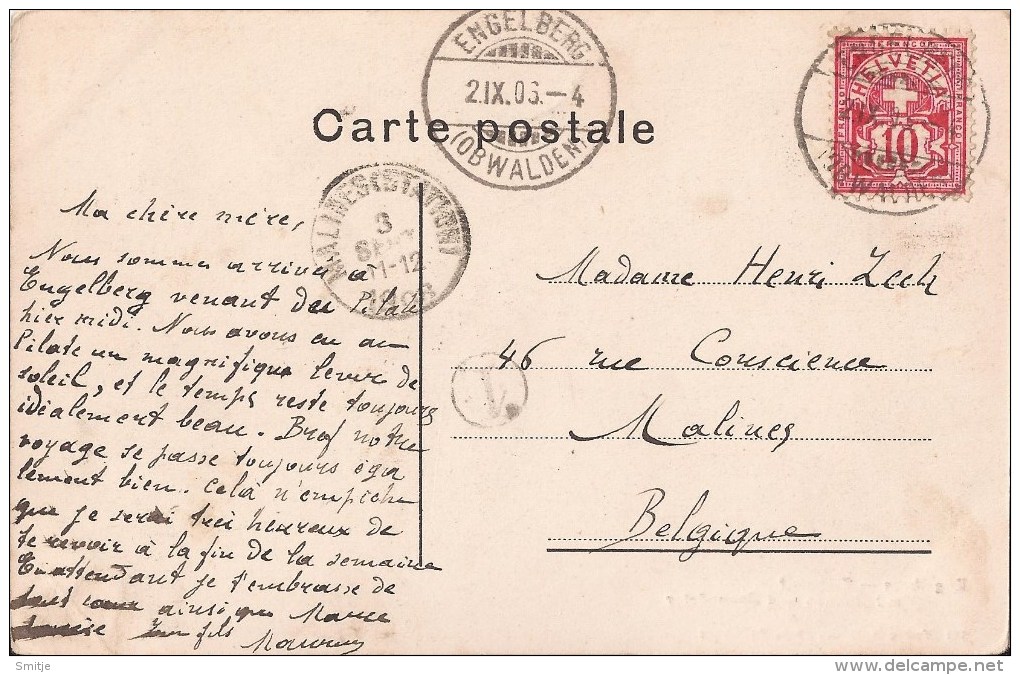 ENGELBERG
2.IX.06.-4
(OBWALDEN)
FRANCO
HELVETIA
10
Carte postale
MALINES (STATION)
3
SEPT
11-12
Ma chère mère,
Nous sommes arrivés à
Engelberg venant du Pilate
hier midi. Nous avons eu au
Pilate un magnifique lever de
soleil, et le temps reste toujours
idéalement beau. Bref notre
voyage se passe toujours éga
lement bien. Celà n'empêche
que je serai très heureux de
te revoir à la fin de la semaine
En attendant je t'embrasse de
ainsi que
fils
Madame Henri Zech
46 rue Conscience
Malines
Belgique
1
Smitje
delcampe.net